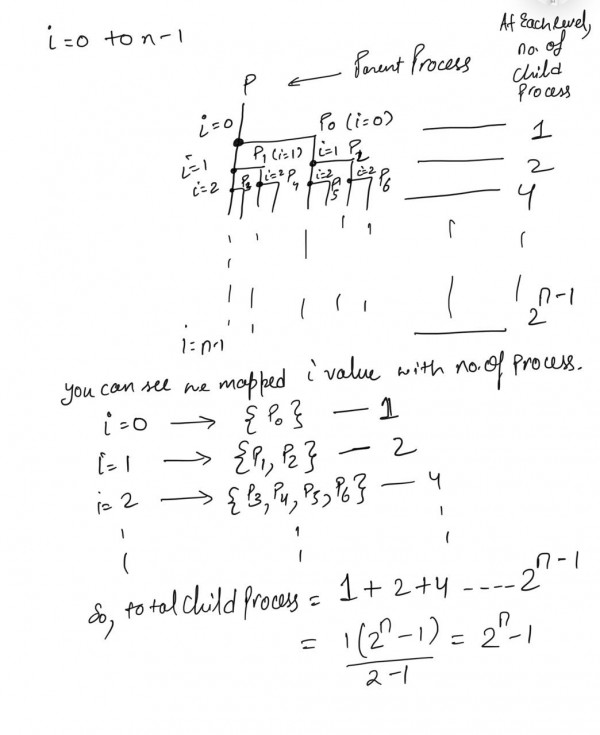 i=0 to n-1
At Each level, no. of child process
P ← Parent Process
i=0 P0 (i=0) 1
P1 (i=1) i=1 P2
i=1 2
i=2 P3 i=2 P4 i=2 P5 i=2 P6 4
i=n-1 2^n-1
you can see we mapped i value with no. of process.
i=0 → {P0} — 1
i=1 → {P1, P2} — 2
i=2 → {P3, P4, P5, P6} — 4
So, total child process = 1+2+4 ----2^n-1
= 1(2^n-1)/2-1 = 2^n-1